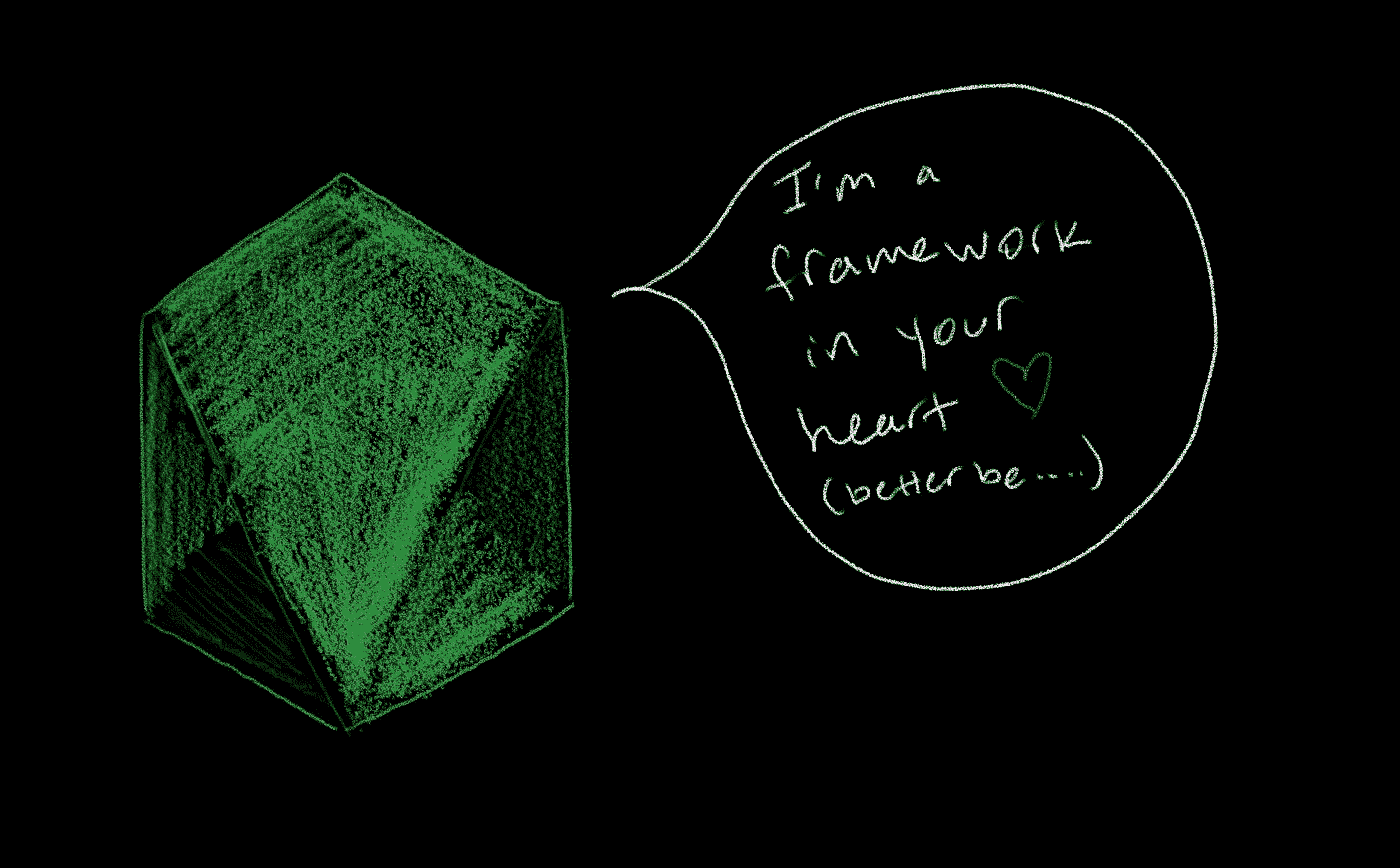 I'm a
framework
in your
heart ♡
(better be.....)